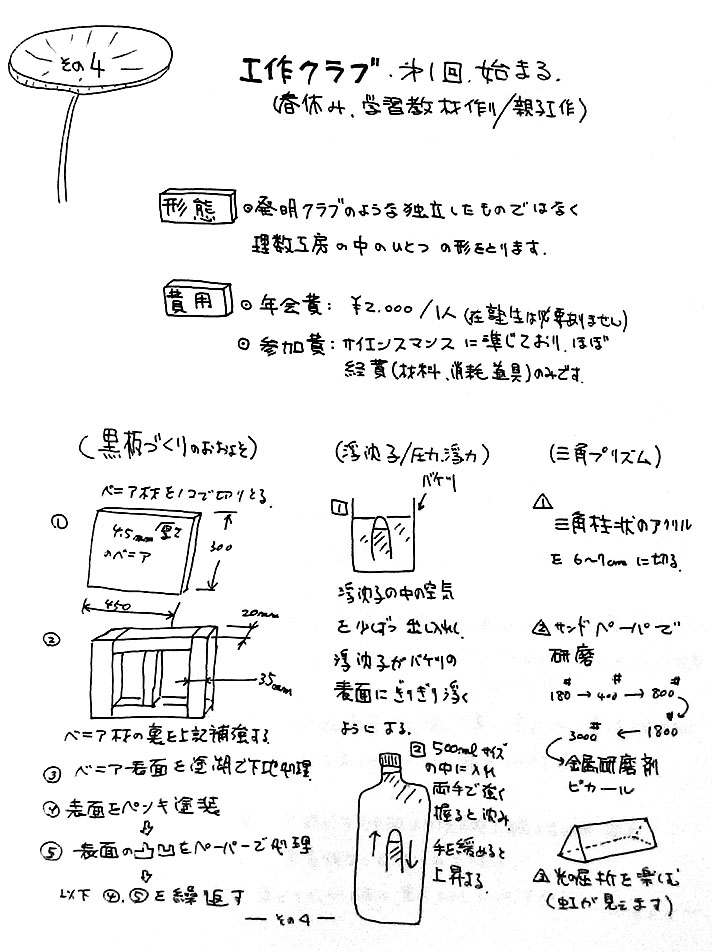 その4
工作クラブ・オ1回.始まる.
(春休み、学習教材作り/親子工作)
形態
⊙発明クラブのような独立したものではなく
理数工房の中のひとつの形をとります.
費用
⊙年会費: ¥2.000/1人(在塾生は必要ありません)
⊙参加費:サイエンスマンスに準じており、ほぼ
経費(材料、消耗道具)のみです.
(黒板づくりのおおよそ)
ベニア材をノコで切りとる.
①
4.5mm厚さ
のベニア
300
450
②
20mm
35mm
ベニア材の裏を上記補強する
③ ベニア表面を塗湖で下地処理
④ 表面をペンキ塗装
⑤ 表面の凸凹をペーパーで処理
以下 ④.⑤を繰返す
(浮沈子/圧力.浮力)
バケツ
1
浮沈子の中の空気
を少しずつ出し入れし
浮沈子がバケツの
表面にぎりぎり浮く
ようにする.
2 500mlサイズ
の中に入れ
両手で強く
握ると沈み
手を緩めると
上昇する
(三角プリズム)
1
三角柱状のアクリル
を 6〜7cmに切る.
2 サンドペーパーで
研磨
180# → 400# → 800#
3000# ← 1800#
金属研磨剤
ピカール
3 光の屈折を楽しむ
(虹が見えます)
— その4 —